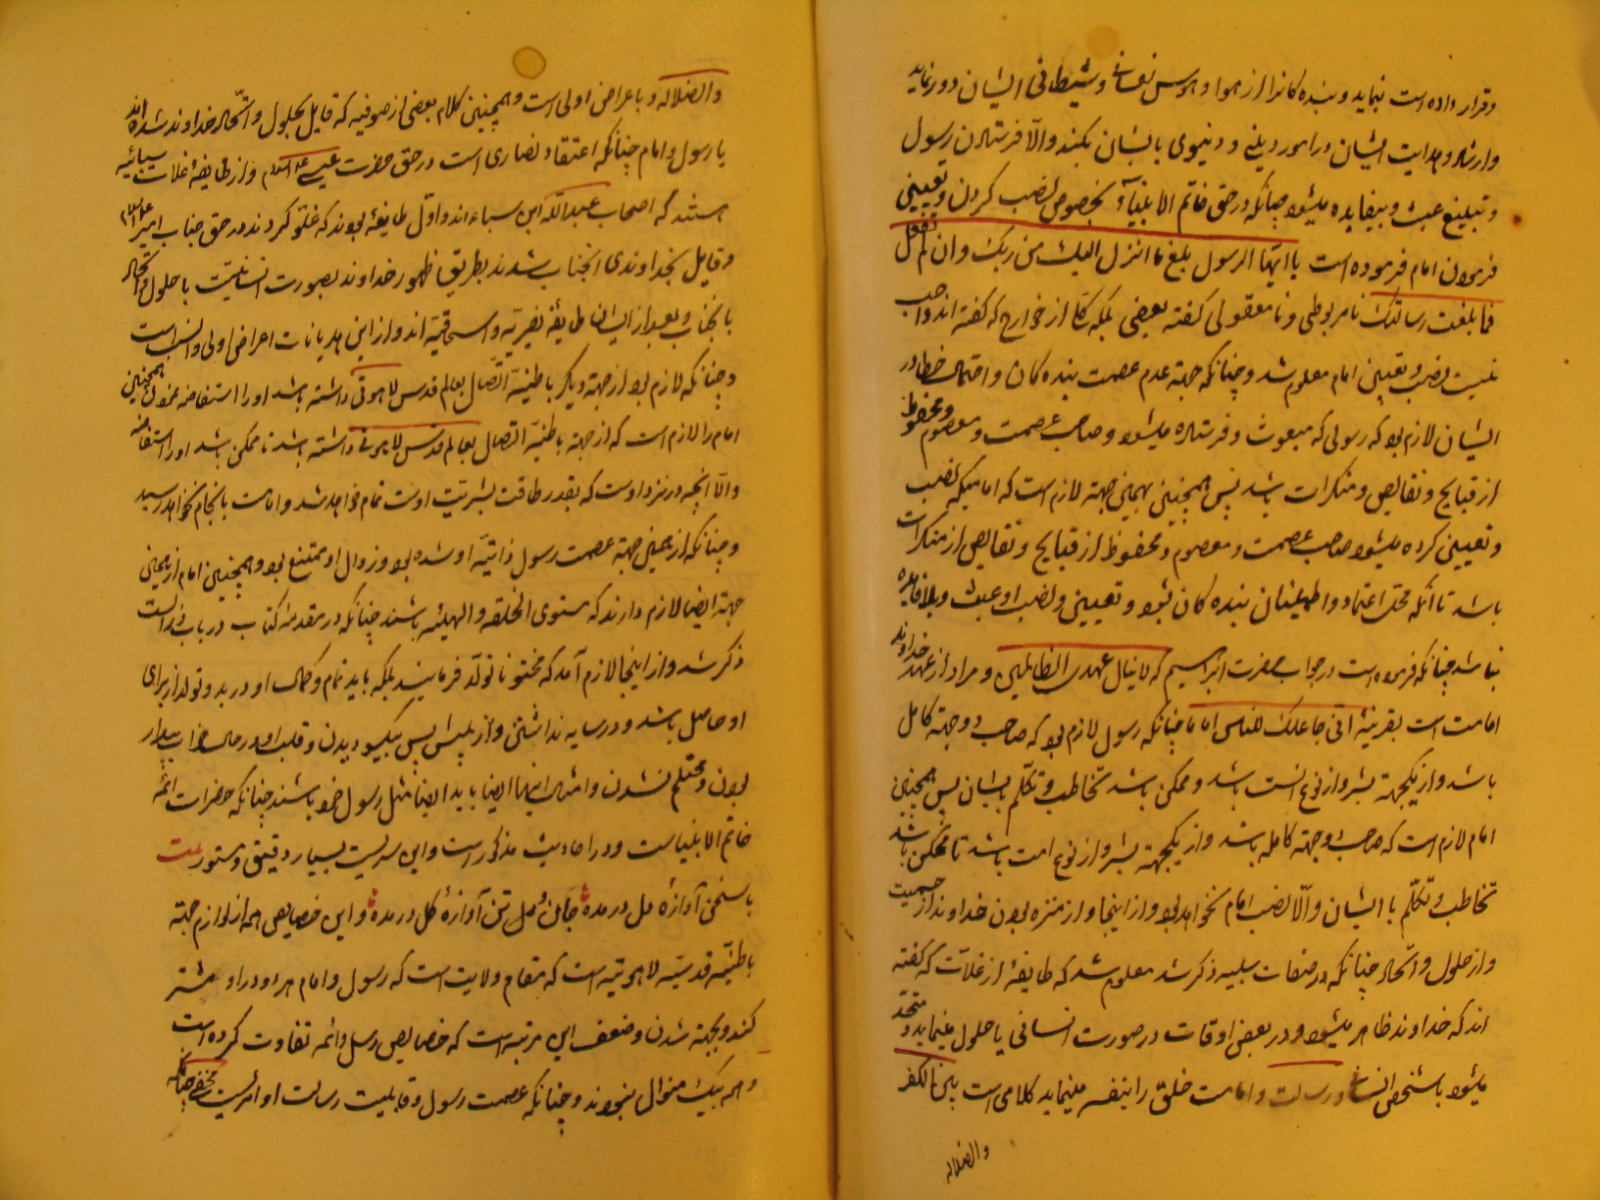 و قرار داده است نیماید و بنده کانرا از هوا و هوس نفسانی و شیطانی ایشان دور نماید
و ارشاد و هدایت ایشان در امور دینی و دنیوی بایشان نکند والّا فرستادن رسول
و تبلیغ عبث و بیفایده میشود چنانکه در حق خاتم الانبیآء بخصوص نصب کردن و تعیین
فرمودن امام فرموده است یا ایها الرسول بلغ ما انزل الیک من ربک و ان لم تفعل
فما بلغت رسالتک نامربوطی و نامعقولی کفته بعضی از خوارج که کفته اند واجب
نیست نصب و تعیین امام معلوم شد و چنانکه جهة عدم عصمت بنده کان و احتمال خطا در
ایشان لازم بود که رسولی که مبعوث و فرستاده میشود صاحب عصمت و معصوم و محفوظ
از قبایح و نقایص و منکرات باشد پس همچنین بهمین جهة لازم است که امامیکه نصب
و تعیین کرده میشود صاحب عصمت و معصوم و محفوظ از قبایح و نقایص از منکرات
باشد تا آنکه محل اعتماد و اطمینان بنده کان شود و تعیین و نصب او عبث و بلافایده
نباشد چنانکه فرموده است در جواب حضرت ابراهیم که لا ینال عهدی الظالمین و مراد از عهد خداوند
امامت است بقرینهٔ انّی جاعلک للناس اماما چنانکه رسول لازم بود که صاحب دو جهة کامل
باشد و از یکجهة بشر و از نوع انست باشد و ممکن باشد تخاطب و تکلم بایشان پس همچنین
امام لازم است که صاحب دو جهة کامله باشد و از یکجهة بشر و از نوع امت باشد تا ممکن باشد
تخاطب و تکلّم با ایشان والّا نصب امام نخواهد بود و از اینجا و از منزه بودن خداوند از جسمیت
و از حلول و اتّحاد چنانکه در صفات سلبیه ذکر شد معلوم شد که طایفهٔ از غلات که کفته
اند که خداوند ظاهر میشود در بعض اوقات در صورت انسانی یا حلول مینماید و متحدّ
میشود با شخص انسانی و رسالت و امامت خلق را بنفسه مینماید کلامی است بین الکفر
والضلاله
والضلاله و باعراض اولی است و همچنین کلام بعضی از صوفیه که قایل بحلول و اتّحاد خداوند شده اند
با رسول و امام چنانکه اعتقاد نصاری است در حق حضرت عیسی علیه السلام و از طایفهٔ غلات سبائیه
هستند که اصحاب عبدالله ابن سباء اند و اوّل طایفهٔ بودند که غلّو کردند در حق جناب امیر علیه السلام
و قایل بخداوندی انجناب شدند بطریق ظهور خداوند بصورت انسانیّت یا حلول و اتّحاد
بانجناب و بعد از ایشان طایفهٔ نصریّه و اسحاقیّه اند و از این هدیانات اعراض اولی و انسب است
و چنانکه لازم بود از جهة دیکر باطنیّه اتّصال بعالم قدس لاهوتی داشته باشد او را استفاضه همچنین
امام را لازم است که از جهة باطنیّه اتّصال بعالم قدس لاهوتی داشته باشد تا ممکن باشد او را استفاضه
والّا انچه در نزد اوست که بقدر طاقت بشریّت اوست تمام خواهد شد و امامت بانجام نخواهد رسید
و چنانکه از همین جهة عصمت رسول ذاتیّه او شده بود و زوال او ممتنع بود و همچنین امام از همین
جهة ایضا لازم دارند که مستوی الخلقه و الهیئه باشند چنانکه در مقدمهٔ کتاب در باب
ذکر شد و از اینجا لازم آمد که مختونا تولّد فرمایند بلکه باید تمام و کمال او در بدو تولد از برای
او حاصل باشد و در سایه نداشتن و از پیش پس یکسو دیدن و قلب او در حال خواب بیدار
بودن و محتلم نشدن و امثال اینها ایضا باید ایضا مثل رسول خود باشند چنانکه حضرات ائمّه
خاتم الانبیاست و در احادیث مذکور است و این سریست بسیار دقیق و مستور بیت
باسخن آوازهٔ دل در مده جان و دل تن آوازهٔ کل در مده و این خصایص همه از لوازم جهة
باطنیّه قدسیّه لاهوتیّه است که مقام ولایت است که رسول و امام هر دو در او مشتر
کند و بجهة شدّت و ضعف این مرتبه است که خصایص رسل و ائمه تفاوت کرده است
و همه بیک منوال نبودند و چنانکه عصمت رسول و قابلیت رسالت او امریست مخفی چنانکه